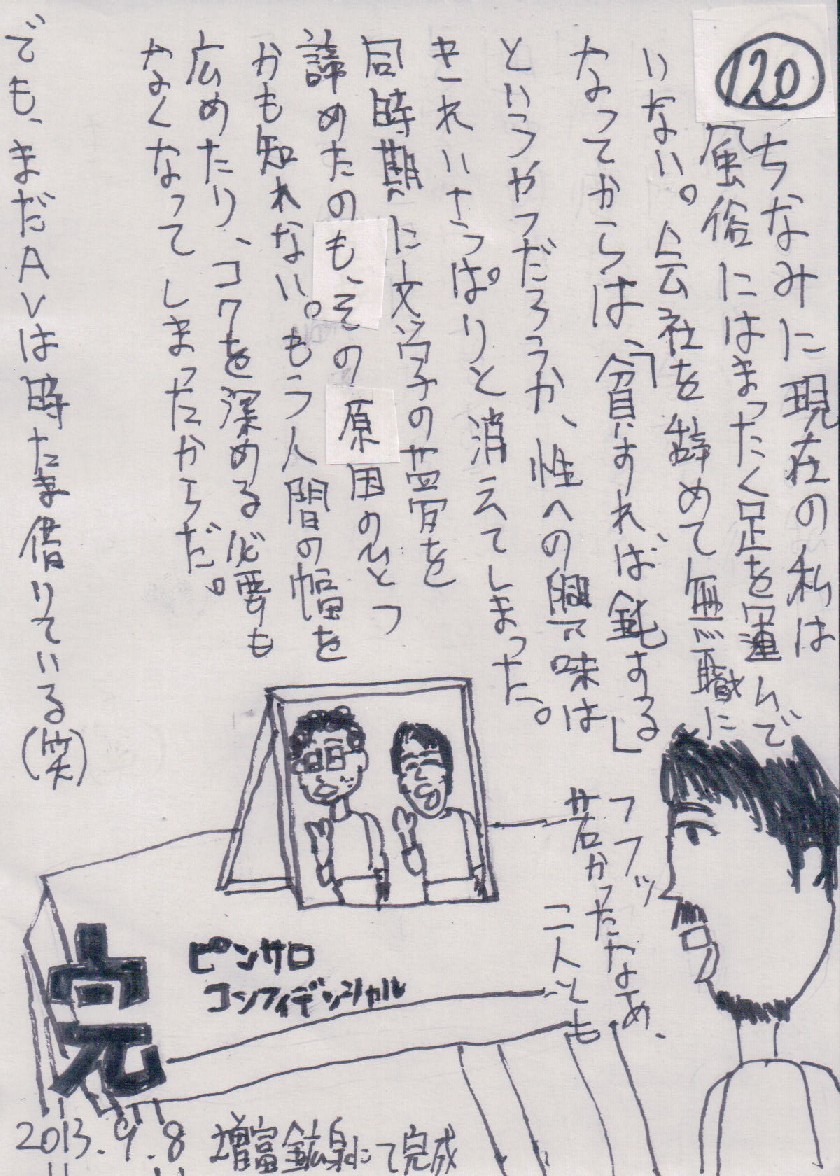 120
ちなみに現在の私は
風俗にはまったく足を運んで
いない。会社を辞めて無職に
なってからは、「貧すれば、鈍する」
というやつだろうか、性への興味は
きれいさっぱりと消えてしまった。
同時期に文学の夢を
諦めたのも、その原因のひとつ
かも知れない。もう人間の幅を
広めたり、コクを深める必要も
なくなってしまったからだ。
でも、まだAVは時たま借りている(笑)
フフッ
若かったなあ、
二人とも
ピンサロ
コンフィデンシャル
完
2013.9.8 増富鉱泉にて完成